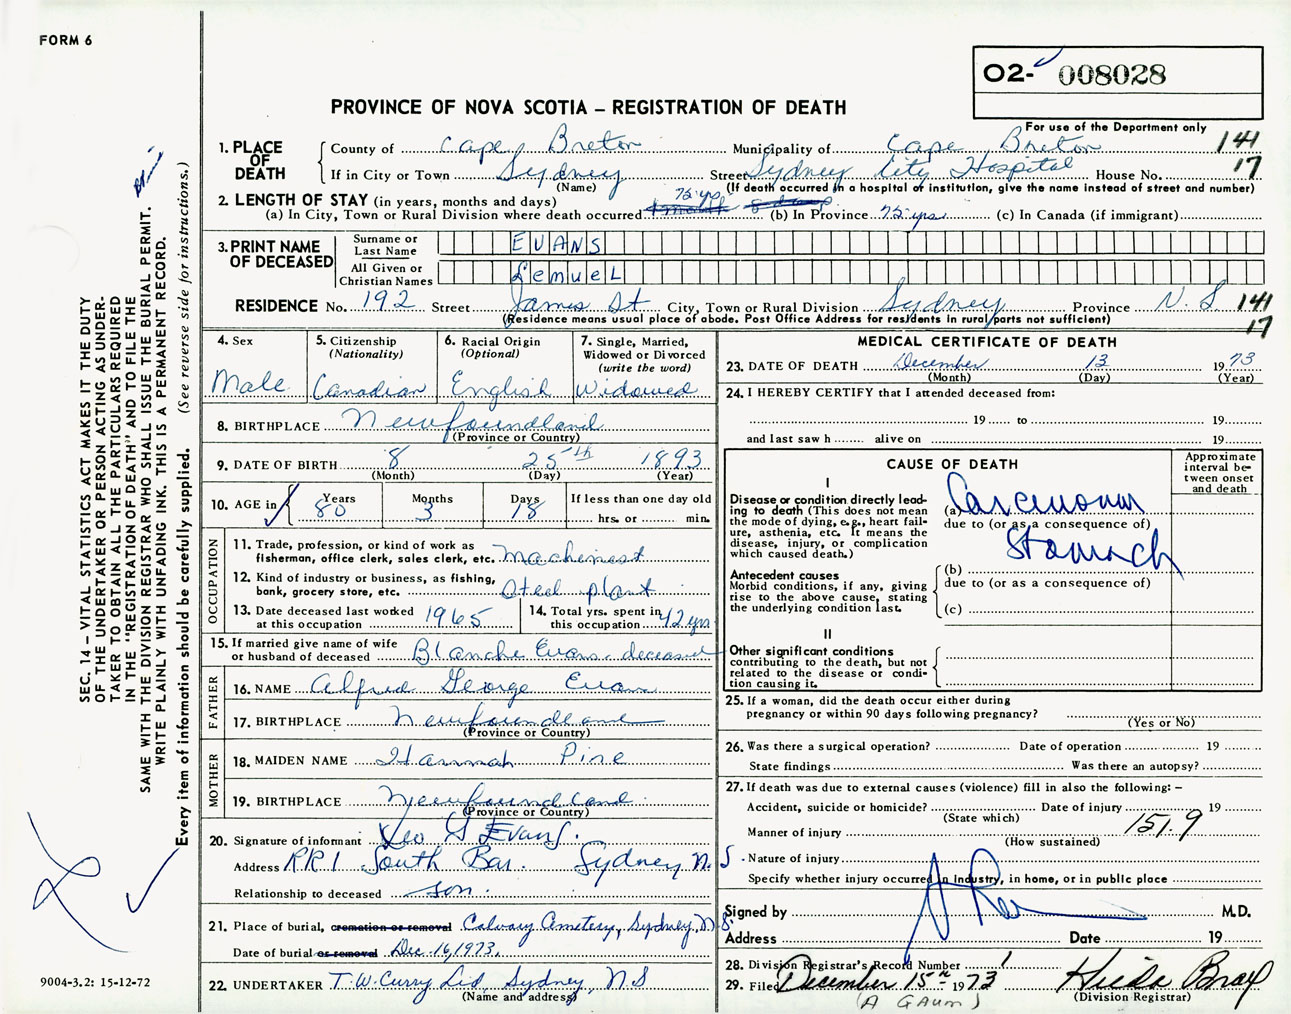 FORM 6
O2- 008028
For use of the Department only
PROVINCE OF NOVA SCOTIA – REGISTRATION OF DEATH
SEC. 14 – VITAL STATISTICS ACT MAKES IT THE DUTY
OF THE UNDERTAKER OR PERSON ACTING AS UNDER-
TAKER TO OBTAIN ALL THE PARTICULARS REQUIRED
IN THE "REGISTRATION OF DEATH" AND TO FILE THE
SAME WITH THE DIVISION REGISTRAR WHO SHALL ISSUE THE BURIAL PERMIT.
WRITE PLAINLY WITH UNFADING INK. THIS IS A PERMANENT RECORD.
Every item of information should be carefully supplied. (See reverse side for instructions.)
1. PLACE OF DEATH County of Cape Breton Municipality of Cape Breton 141
If in City or Town Sydney Street Sydney City Hospital House No. 17
(Name) (If death occurred in a hospital or institution, give the name instead of street and number)
2. LENGTH OF STAY (in years, months and days)
(a) In City, Town or Rural Division where death occurred 75 yrs (b) In Province 75 yrs (c) In Canada (if immigrant)
3. PRINT NAME OF DECEASED Surname or Last Name EVANS
All Given or Christian Names LemueL
RESIDENCE No. 192 Street James St City, Town or Rural Division Sydney Province N.S 141
(Residence means usual place of abode. Post Office Address for residents in rural parts not sufficient) 17
4. Sex Male
5. Citizenship (Nationality) Canadian
6. Racial Origin (Optional) English
7. Single, Married, Widowed or Divorced (write the word) Widowed
8. BIRTHPLACE Newfoundland
(Province or Country)
9. DATE OF BIRTH 8 25th 1893
(Month) (Day) (Year)
10. AGE in Years 80 Months 3 Days 18 If less than one day old
hrs. or min.
OCCUPATION
11. Trade, profession, or kind of work as
fisherman, office clerk, sales clerk, etc. Machinest
12. Kind of industry or business, as fishing,
bank, grocery store, etc. Steel plant
13. Date deceased last worked at this occupation 1965
14. Total yrs. spent in this occupation 42 yrs
15. If married give name of wife
or husband of deceased Blanche Evans - deceased
FATHER
16. NAME Alfred George Evans
17. BIRTHPLACE Newfoundland
(Province or Country)
MOTHER
18. MAIDEN NAME Hannah Pine
19. BIRTHPLACE Newfoundland
(Province or Country)
20. Signature of informant Geo G Evans.
Address RR1 South Bar. Sydney N.S
Relationship to deceased son.
21. Place of burial, cremation or removal Calvary Cemetery, Sydney, N.S.
Date of burial or removal Dec. 16, 1973.
22. UNDERTAKER T.W. Curry Ltd, Sydney, N S
(Name and address)
MEDICAL CERTIFICATE OF DEATH
23. DATE OF DEATH December 13 1973
(Month) (Day) (Year)
24. I HEREBY CERTIFY that I attended deceased from:
19 to 19
and last saw h alive on 19
CAUSE OF DEATH
Approximate interval between onset and death
I
Disease or condition directly lead-
ing to death (This does not mean
the mode of dying, e.g., heart fail-
ure, asthenia, etc. It means the
disease, injury, or complication
which caused death.)
(a) Carcinoma
due to (or as a consequence of)
Stomach
Antecedent causes
Morbid conditions, if any, giving
rise to the above cause, stating
the underlying condition last.
(b)
due to (or as a consequence of)
(c)
II
Other significant conditions
contributing to the death, but not
related to the disease or condi-
tion causing it.
25. If a woman, did the death occur either during
pregnancy or within 90 days following pregnancy?
(Yes or No)
26. Was there a surgical operation? Date of operation 19
State findings Was there an autopsy?
27. If death was due to external causes (violence) fill in also the following: –
Accident, suicide or homicide? Date of injury 19
(State which)
Manner of injury 151.9
(How sustained)
Nature of injury
Specify whether injury occurred in industry, in home, or in public place
Signed by M.D.
Address Date 19
28. Division Registrar's Record Number 1
29. Filed December 15th 1973 Hilda Bray
(A GAUM) (Division Registrar)
9004-3.2: 15-12-72